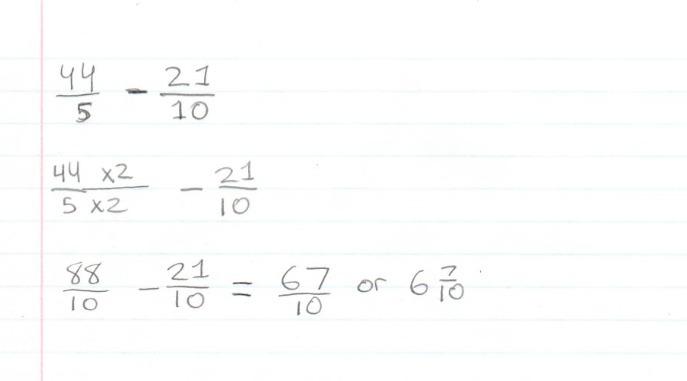 44/5 - 21/10
44 x2/5 x2 - 21/10
88/10 - 21/10 = 67/10 or 6 7/10